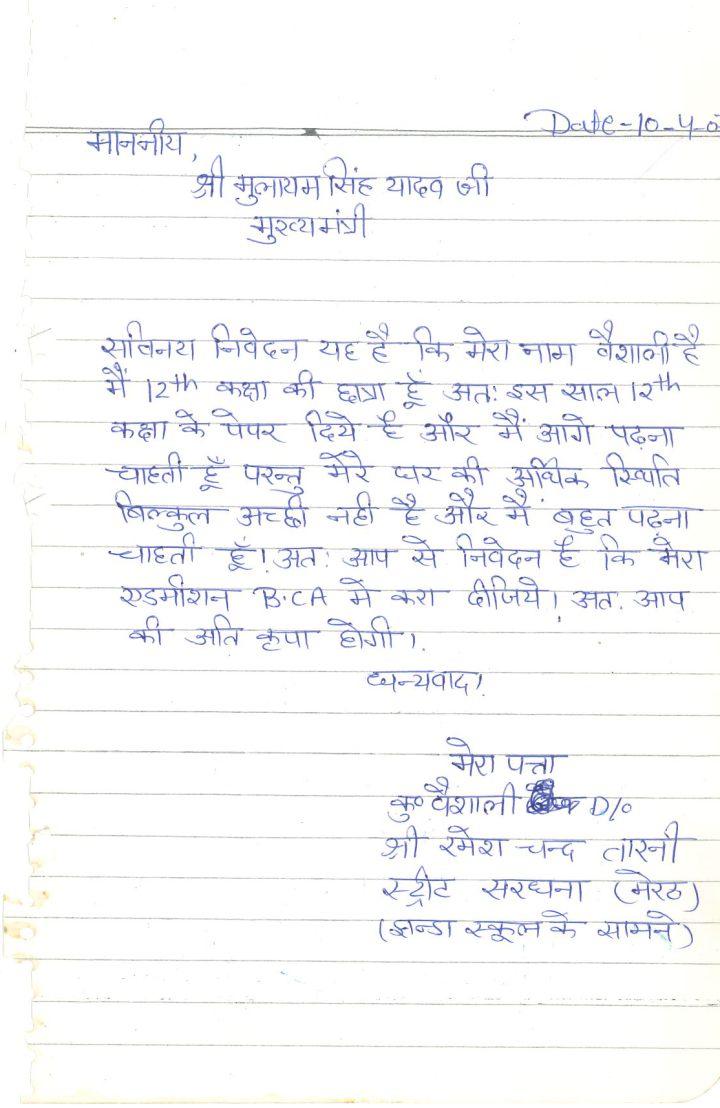 Date-10-4-0
माननीय,
श्री मुलायम सिंह यादव जी
मुख्यमंत्री
सविनय निवेदन यह है कि मेरा नाम वैशाली है
मैं 12th कक्षा की छात्रा हूँ अत: इस साल 12th
कक्षा के पेपर दिये है और मैं आगे पढ़ना
चाहती हूँ परन्तु मेरे घर की आर्थिक स्थिति
बिल्कुल अच्छी नही है और मैं बहुत पढ़ना
चाहती हूँ। अत: आप से निवेदन है कि मेरा
एडमीशन B.CA मे करा दीजिये। अत. आप
की अति कृपा होगी।
धन्यवाद।
मेरा पत्ता
कु० वैशाली D/o
श्री रमेश चन्द तारनी
स्ट्रीट सरधना (मेरठ)
(झन्डा स्कूल के सामने)